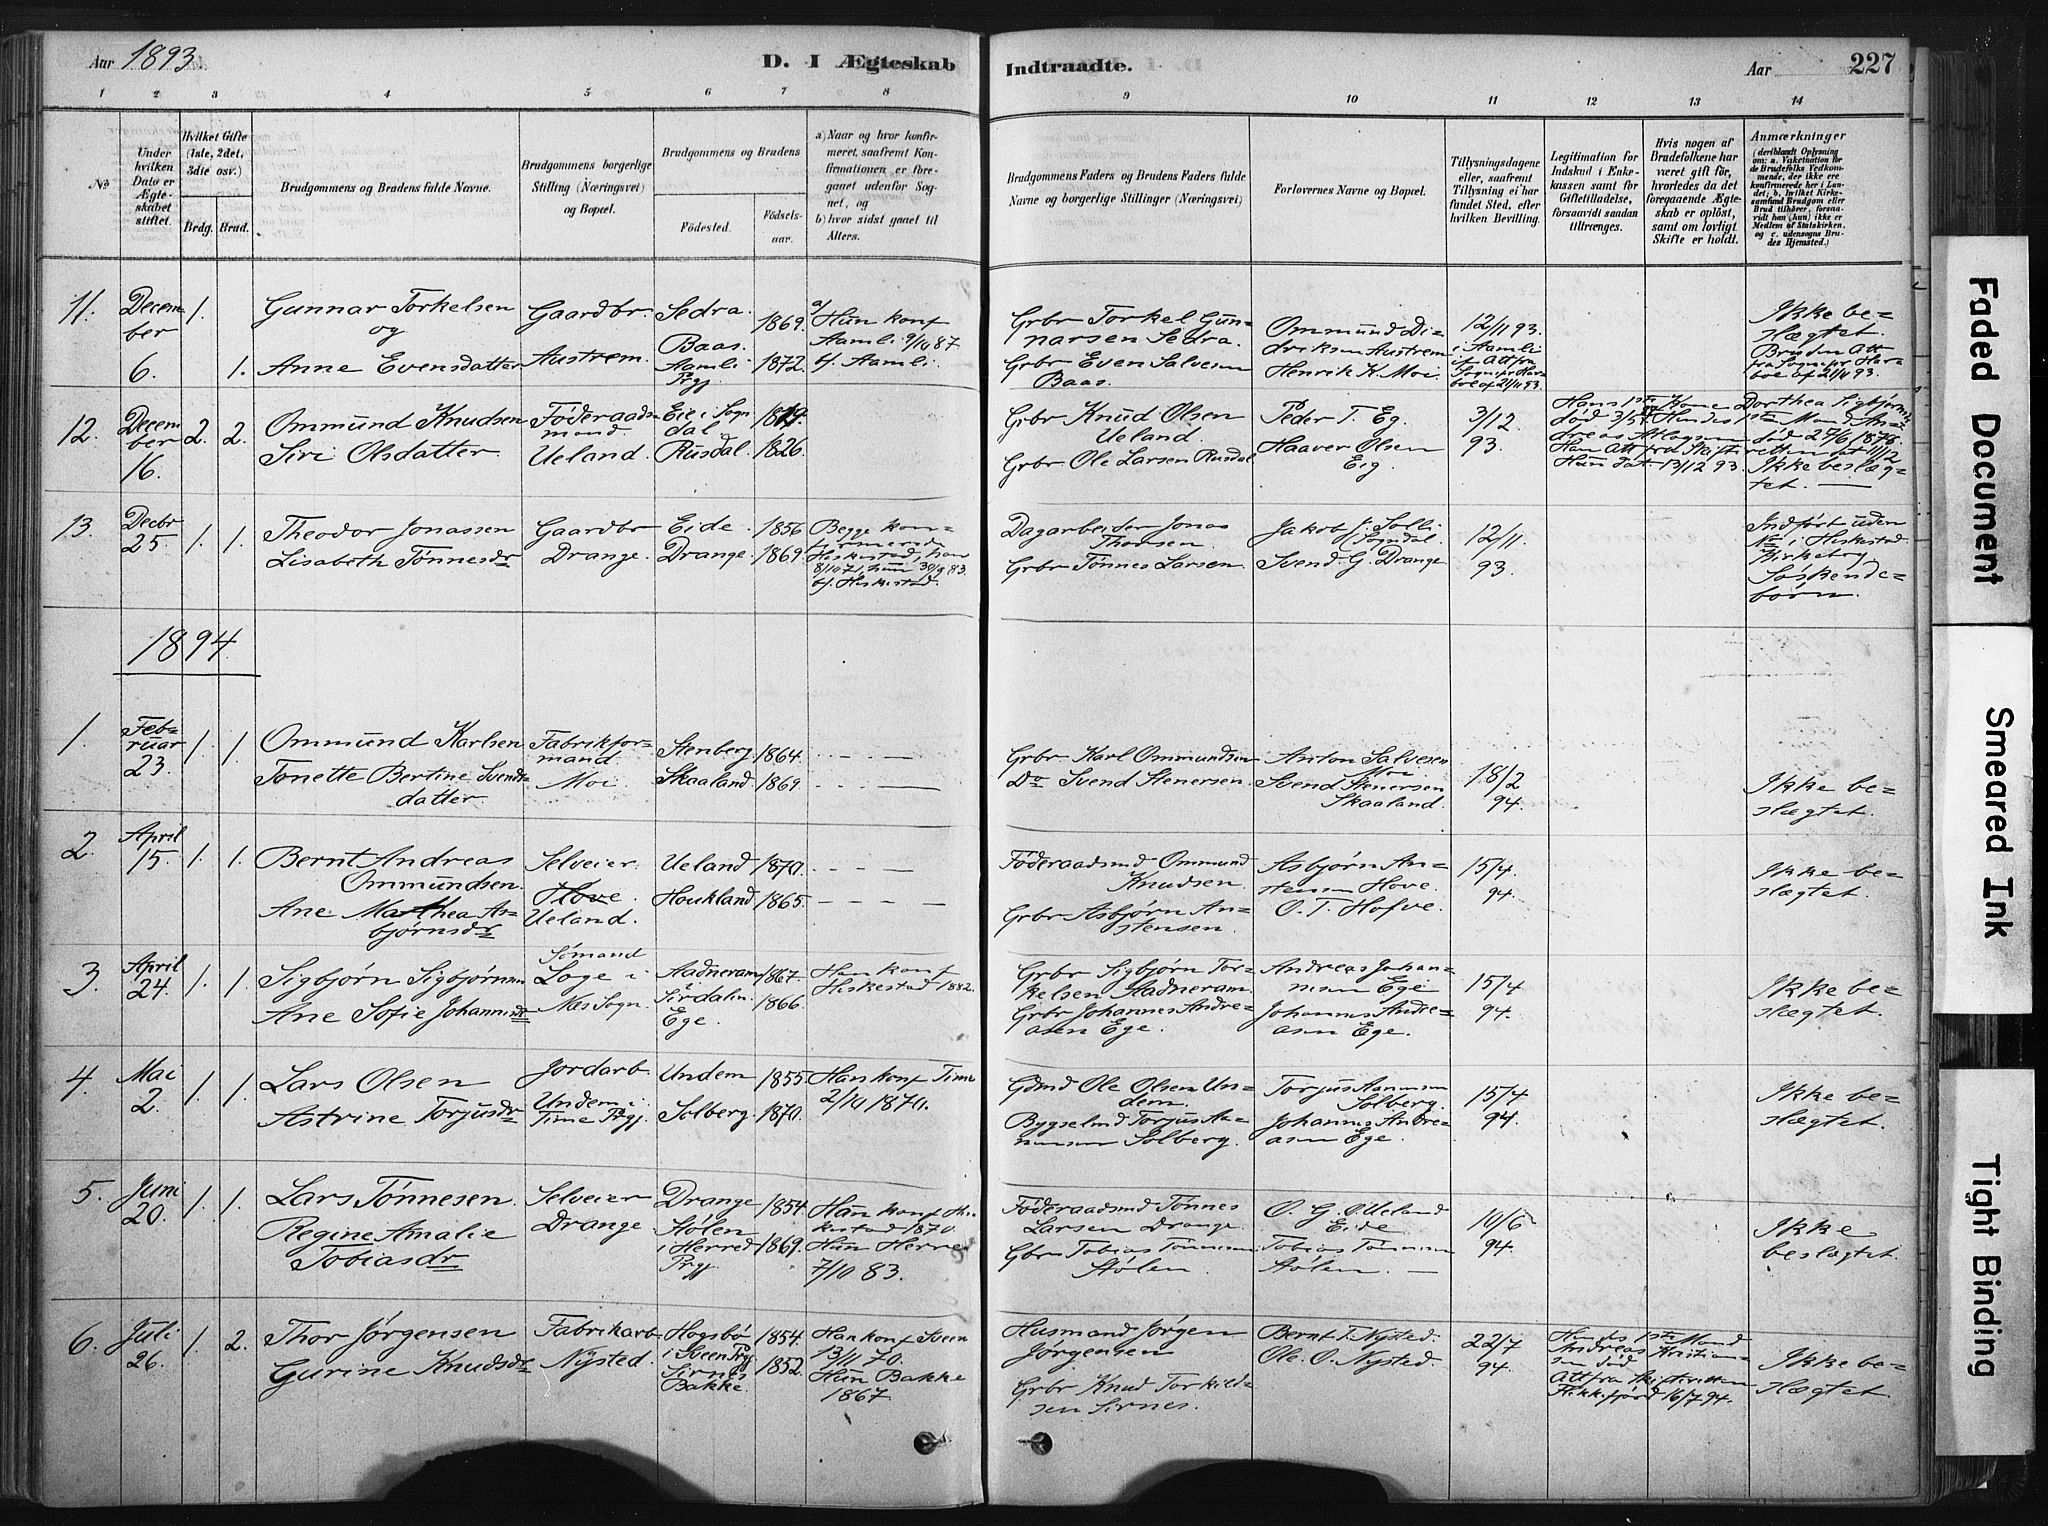 Aar 1893.
D. I Ægteskab
Indtraadte.
Aar
227
1 2 3 4 5 6 7 8 9 10 11 12 13 14
No
Under hvilken Dato er Ægteskabet stiftet.
Hvilket Gifte (1ste, 2det, 3die osv.)
Brdg. Brud.
Brudgommens og Brudens fulde Navne.
Brudgommens borgerlige Stilling (Næringsvei) og Bopæl.
Brudgommens og Brudens
Födested.
Födsels-aar.
a) Naar og hvor konfirmeret, saafremt Konfirmationen er foregaaet udenfor Sognet, og
b) hvor sidst gaaet til Alters.
Brudgommens Faders og Brudens Faders fulde Navne og borgerlige Stillinger (Næringsvei)
Forlovernes Navne og Bopæl.
Tillysningsdagene eller, saafremt Tillysning ei har fundet Sted, efter hvilken Bevilling.
Legitimation for Indskud i Enkekassen samt for Giftetilladelse, forsaavidt saadan tiltrænges.
Hvis nogen af Brudefolkene har været gift för, hvorledes da det foregaaende Ægteskab er oplöst, samt om lovligt Skifte er holdt.
Anmærkninger
(deriblandt Oplysning om: a. Vakcination for de Brudefolks Vedkommende, der ikke ere konfirmerede her i Landet; b. hvilket Kirkesamfund Brudgom eller Brud tilhörer, forsaavidt han (hun) ikke er Medlem af Statskirken, og c. udensogns Brudes Hjemsted.)
11. December 6. 1. 1.
Gunnar Torkelsen og
Anne Evensdatter
Gaardbr.
Austrem.
Sedra.
Baas. Aamli Prgj.
1869.
1872.
a/ Hun konf Aamli 9/10 87
b/. Aamli.
Grbr Torkel Gunnarsen Sedra.
Grbr Even Salvesen Baas.
Ommund Didriksen Austrem
Henrik K. Moi.
12/11 93.
i Aamli
Ikke beslægtet.
12. December 16. 2. 2.
Ommund Knudsen
Siri Olsdatter.
Föderaadsmand.
Ueland.
Eie i Sogndal
Rusdal.
1826.
Grbr Knud Olsen Ueland.
Grbr Ole Larsen Rusdal
Peder T. Eg.
Haaver Olsen Eig.
3/12 93.
Ikke beslægtet. —
13. Decbr 25. 1. 1.
Theodor Jonassen
Lisabeth Tønnesdr
Gaardbr
Drange.
Eide.
Drange.
1856
1869.
Begge konfirmerede Heskestad, han 8/10 71, hun 30/9 83.
b/. Heskestad.
Dagarbeider Jonas Thorsen.
Grbr Tönnes Larsen.
Jakob J. Solli Sogndal.
Svend G. Drange
12/11. 93.
Indfört uden No i Heskestad Kirkebog
Søskendebörn.
1894.
1. Februar 23. 1. 1.
Ommund Karlsen
Tonette Bertine Svendsdatter.
Fabrikformand.
Moi.
Stenberg
Skaaland
1864
1869.
Grbr Karl Ommundsen
Do Svend Stenersen.
Anton Salvesen Moi.
Svend Stenersen Skaaland.
18/2 94.
Ikke beslægtet.
2. April 15. 1. 1.
Bernt Andreas Ommundsen.
Ane Marthea Asbjørnsdr
Selveier
Hove.
Ueland.
Ueland
Houkland
1870.
1865.
Föderaadsmd Ommund Knudsen.
Grbr Asbjørn Anstensen.
Asbjørn Anstensen Hove.
O. T. Hofve.
15/4 94.
Ikke beslægtet.
3. April 24. 1. 1.
Sigbjørn Sigbjørnsen
Ane Sofie Johannesdr
Sømand
Loge i Næs Sogn.
Aadneram Sirdalen
Ege.
1867.
1866.
Han konf Heskestad 1882.
Grbr Sigbjørn Torkelsen Aadneram.
Grbr Johannes Andreasen Ege.
Andreas Johannesen Ege
Johannes Andreasen Ege.
15/4 94.
Ikke beslægtet.
4. Mai 2. 1. 1.
Lars Olsen
Astrine Torjusdr
Jordarb.
Undem i Time Prgj.
Undem
Solberg.
1855.
1870.
Han konf Time 2/10 1870.
Gdmd Ole Olsen Undem.
Bygselmd Torjus Aanensen Solberg.
Torjus Aanensen Solberg.
Johannes Andreasen Ege.
15/4 94.
Ikke beslægtet.
5. Juni 20. 1. 1.
Lars Tönnesen.
Regine Amalie Tobiasdr
Selveier
Drange.
Drange
Stølen i Herred Prgj
1854.
1869.
Han konf Heskestad 1870.
Hun Herred 7/10 83.
Föderaadsmd Tønnes Larsen Drange.
Gbr Tobias Tønnesen Stølen.
O. G. Ueland Eide.
Tobias Tønnesen Stølen. —
10/6 94.
Ikke beslægtet.
6. Juli 26. 1. 2.
Thor Jørgensen
Gurine Knudsdr
Fabrikarb
Nysted.
Hogsbø i Sveen Prgj
Sirnes Bakke.
1854.
1852.
Han konf Sveen 13/11 70.
Hun Bakke 1867.
Husmand Jørgen Jørgensen
Grbr Knud Torkildsen Sirnes.
Bernt T. Nysted.
Ole O. Nysted.
22/7 94.
Hendes 1ste Mand Andreas Kristiansen död
Att fra Skifteretten Flekkefjord 16/7 94.
Ikke beslægtet.
Faded Document
Smeared Ink
Tight Binding